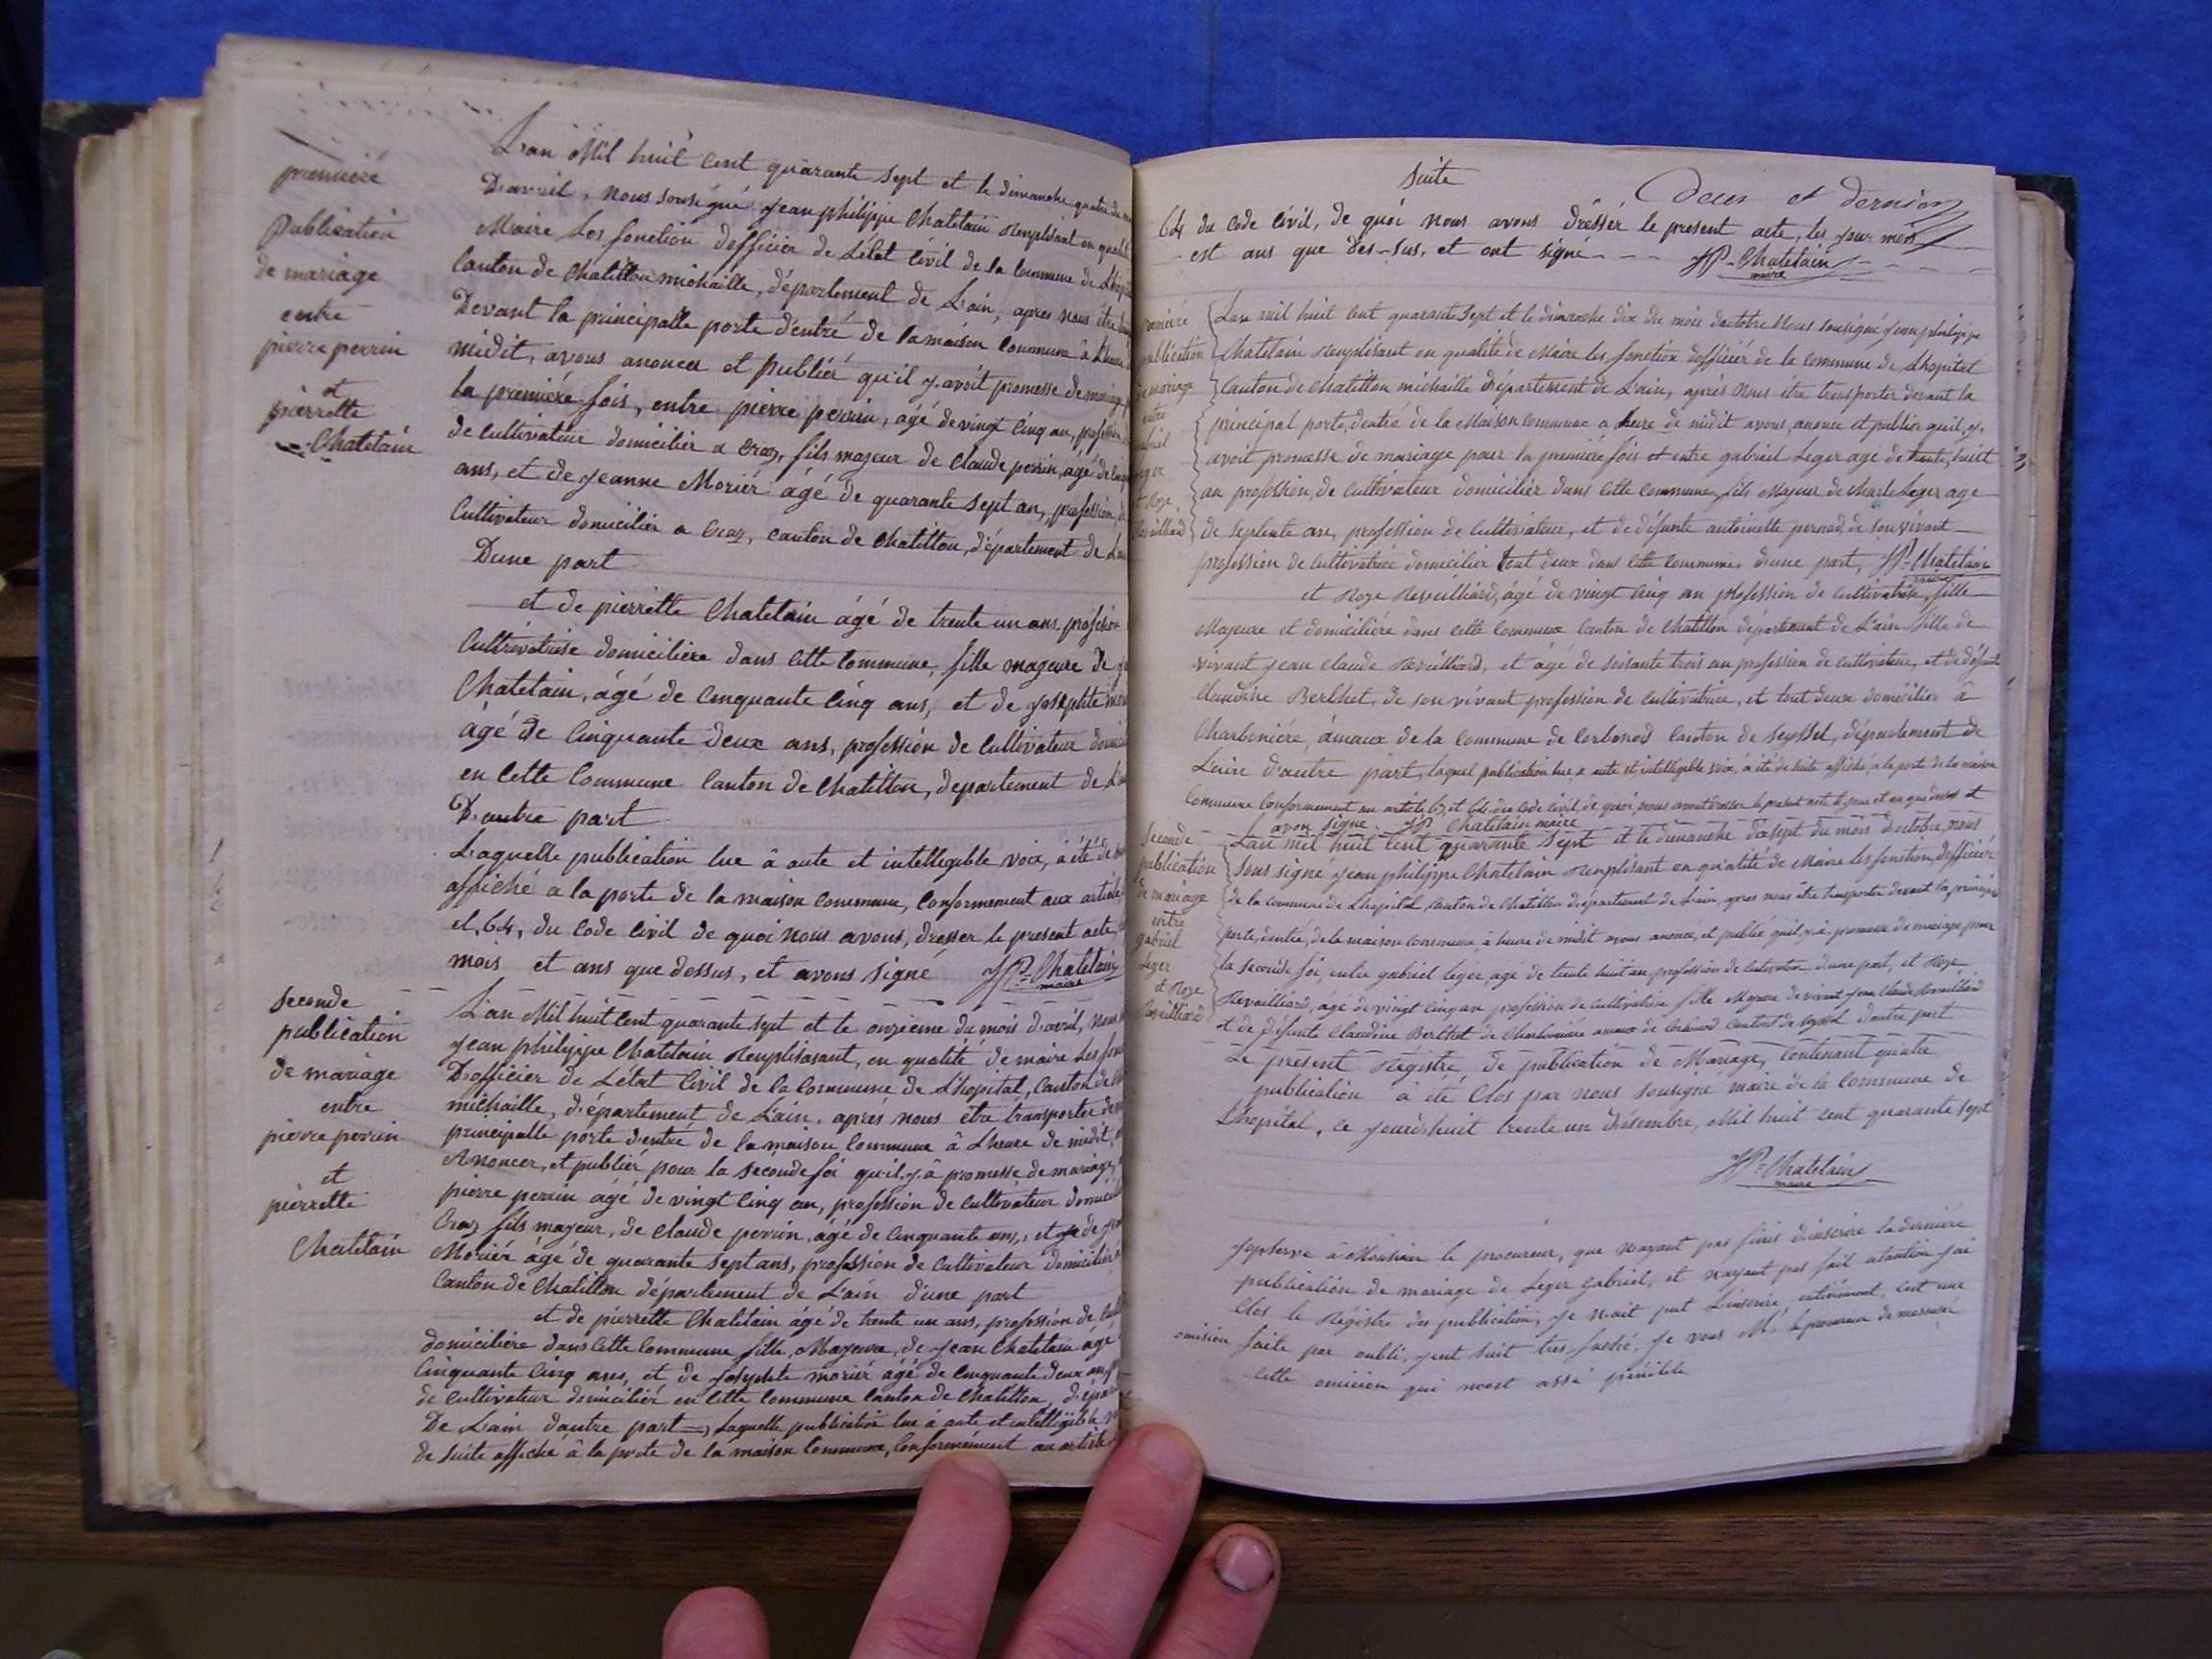 première
Publication
de mariage
entre
pierre perrin
et
pierrette
Chatelain
L'an Mil huit Cent quarante sept et le dimanche quatre
D'avril, nous sousigné Jean philippe Chatelain Remplisant en qualité
Maire Les fonction d'officier de L'état Civil de la Commune de
Canton de Chatillon michaille, département de L'ain, apres nous être
Devant la principalle porte d'entré de la maison Commune à
midit, avons anoncer et publiér qu'il y avoit promesse de mariage
la premiére fois, entre pierre perrin, agé de vingt Cinq an, profession
de Cultivateur domicilier a Craz, fils majeur de Claude perrin, agé de
ans, et de Jeanne Moriér agé de quarante sept an, profession
Cultivateur domicilier a Craz, canton de Chatillon, département de
D'une part
et de pierrette Chatelain agé de trente un ans, profession
Cultivatrise domiciliére dans Cette Commune, fille mageure de
Chatelain, ágé de Cinquante Cinq ans, et de Josephte
ágé de Cinquante deux ans, profession de Cultivateur
en Cette Commune Canton de Chatillon, departement de
D'autre part
Laquelle publication lue â aute et intellegible voix, à été de
affiché a la porte de la maison Commune, Conformement aux article
et, 64, du Code Civil de quoi nous avons, dresser le present acte,
mois et ans que dessus, et avons signé JP Chatelain
maire
Seconde
publication
de mariage
entre
pierre perrin
et
pierrette
Chatelain
L'an Mil huit Cent quarante sept et le onziéme du mois d'avril, nous
Jean philippe Chatelain Remplisasant, en qualité de maire Les
D'officier de L'état Civil de la Commune de L'hopital, Canton de
michaille, département de L'ain, apres nous étre transporter
principalle porte d'entré de la maison Commune â L'heure de midit,
Anoncer, et publiér pour la seconde foi qu'il y à promesse de mariage,
pierre perrin âgé de vingt Cinq an, profession de Cultivateur
Craz fils majeur, de Claude perrin, âgé de Cinquante ans, et de
Moriér ágé de quarante sept ans, profession de Cultivateur domiciliér
Canton de Chatillon département de L'ain d'une part
et de pierrette Chatelain ágé de trente un ans, profession de
domiciliére dans Cette Commune fille, Majeure, de Jean Chatelain ágé
Cinquante Cinq ans, et de Josephte moriér ágé de Cinquante deux ans
de Cultivateur domiciliér en Cette Commune Canton de Chatillon,
De L'ain d'autre part Laquelle publication lue à aute et intelligible
de suite affiché à la porte de la maison Commune, Conformément au article
Suite
Deux et dernier
64 du Code Civil, de quoi nous avons dréssér le present acte, les jour mois
et ans que des-sus, et ont signé JP Chatelain
maire
première
publication
de mariage
entre
gabriel
Leger
et Roze
Reveilliard
L'an mil huit Cent quarante sept et le dimanche dix du mois d'octobre Nous sousigné Jean philippe
Chatelain Remplisant en qualité de Maire les fonction d'officiér de la commune de Lhopital
Canton de Chatillon michaille département de L'ain, aprés Nous etre transporter devant la
principal porte, d'entré de la Maison commune a heure de midit avons, anonce et publier quil, y
avoit promesse de mariage pour la premiére fois et entre gabriel Leger age de trente, huit
an profession, de Cultivateur domicilier dans Cette Commune, fils Majeur de Charle Leger age
de septente an, profession de Cultivateur, et de défunte antoinette pernod, de son vivant
profession de Cultivatrice domicilier tout deux dans Cette Commune, d'une part, JP Chatelain
maire
et Roze Reveilliard, ágé de vingt Cinq an profession de Cultivatrise, fille
Majeure et domiciliére dans Cette Commune Canton de Chatillon département de L'ain fille de
vivant Jean Claude Reveilliard, et âgé de soisante trois an profession de Cultivateur, et de défunte
Claudine Berthet, de son vivant profession de Cultivatrice, et tout deux domicilier â
Charboniére, ámaux de la Commune de Corbonod Canton de Seyssel, département de
L'ain d'autre part, laquel publication lue a aute et intelligible voix, a été de suite affiché, a la porte de la maison
Commune Conformement au article 63 et 64 du Code Civil, de quoi, nous avons dresser le present acte le jour et an que dessus et
avons signé JP Chatelain maire
Seconde
publication
de mariage
entre
gabriel
Leger
et Roze
Reveilliard
L'an mil huit Cent quarante Sept et le dimanche dixsept du mois d'octobre, nous
sous signé Jean philippe Chatelain Remplisant en qualité de Maire les fonction, d'officiér
de la commune de Lhopital Canton de Chatillon département de L'ain, apres nous étre transporter devant la principal
porte, d'entré, de la maison Commune, à heure de midit avons anoncé, et publié quil, y à promesse de mariage pour
la seconde foi, entre gabriel leger, agé de trente huit an, profession de Cultivateur d'une part, et Roze
Revailliard, âgé de vingt Cinq an profession de Cultivatrise fille Majeure de vivant Jean Claude Reveilliard
et de défunte Claudine Berthet de Charboniere amaux de Corbonod Canton de Seyssel d'autre part
Le présent Régistre de publication de Mariage, Contenant quatre
publication à été Clos par nous sousigné maire de la Commune de
Lhopital, ce jourd'huit trente un désembre, Mil huit Cent quarante sept
JP Chatelain
maire
Jopserve â Monsieur le procureur, que nayant pas finis d'inscrire la derniére
publication de mariage de Leger Gabriel, et nayant pas fait atantion jai
Clos le Régistre des publication, je nait put Linscrire, entiérement, C'est une
omision faite par oubli, jent suit tres faché, je vous
cette omision qui mest assé pénible